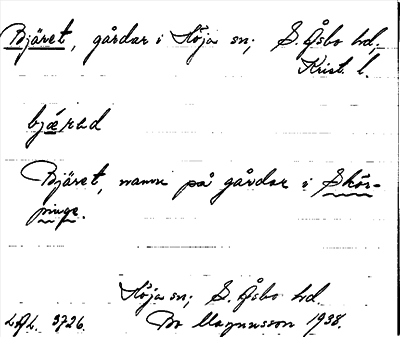 Bjäret, gårdar i Höja sn; S. Åsbo hd;
Krist. l.
bjǽrəd
Bjäret, namn på gårdar i Skör-
pinge.
Höja sn; S. Åsbo hd
LAL. 3726. Bo Magnusson 1938.